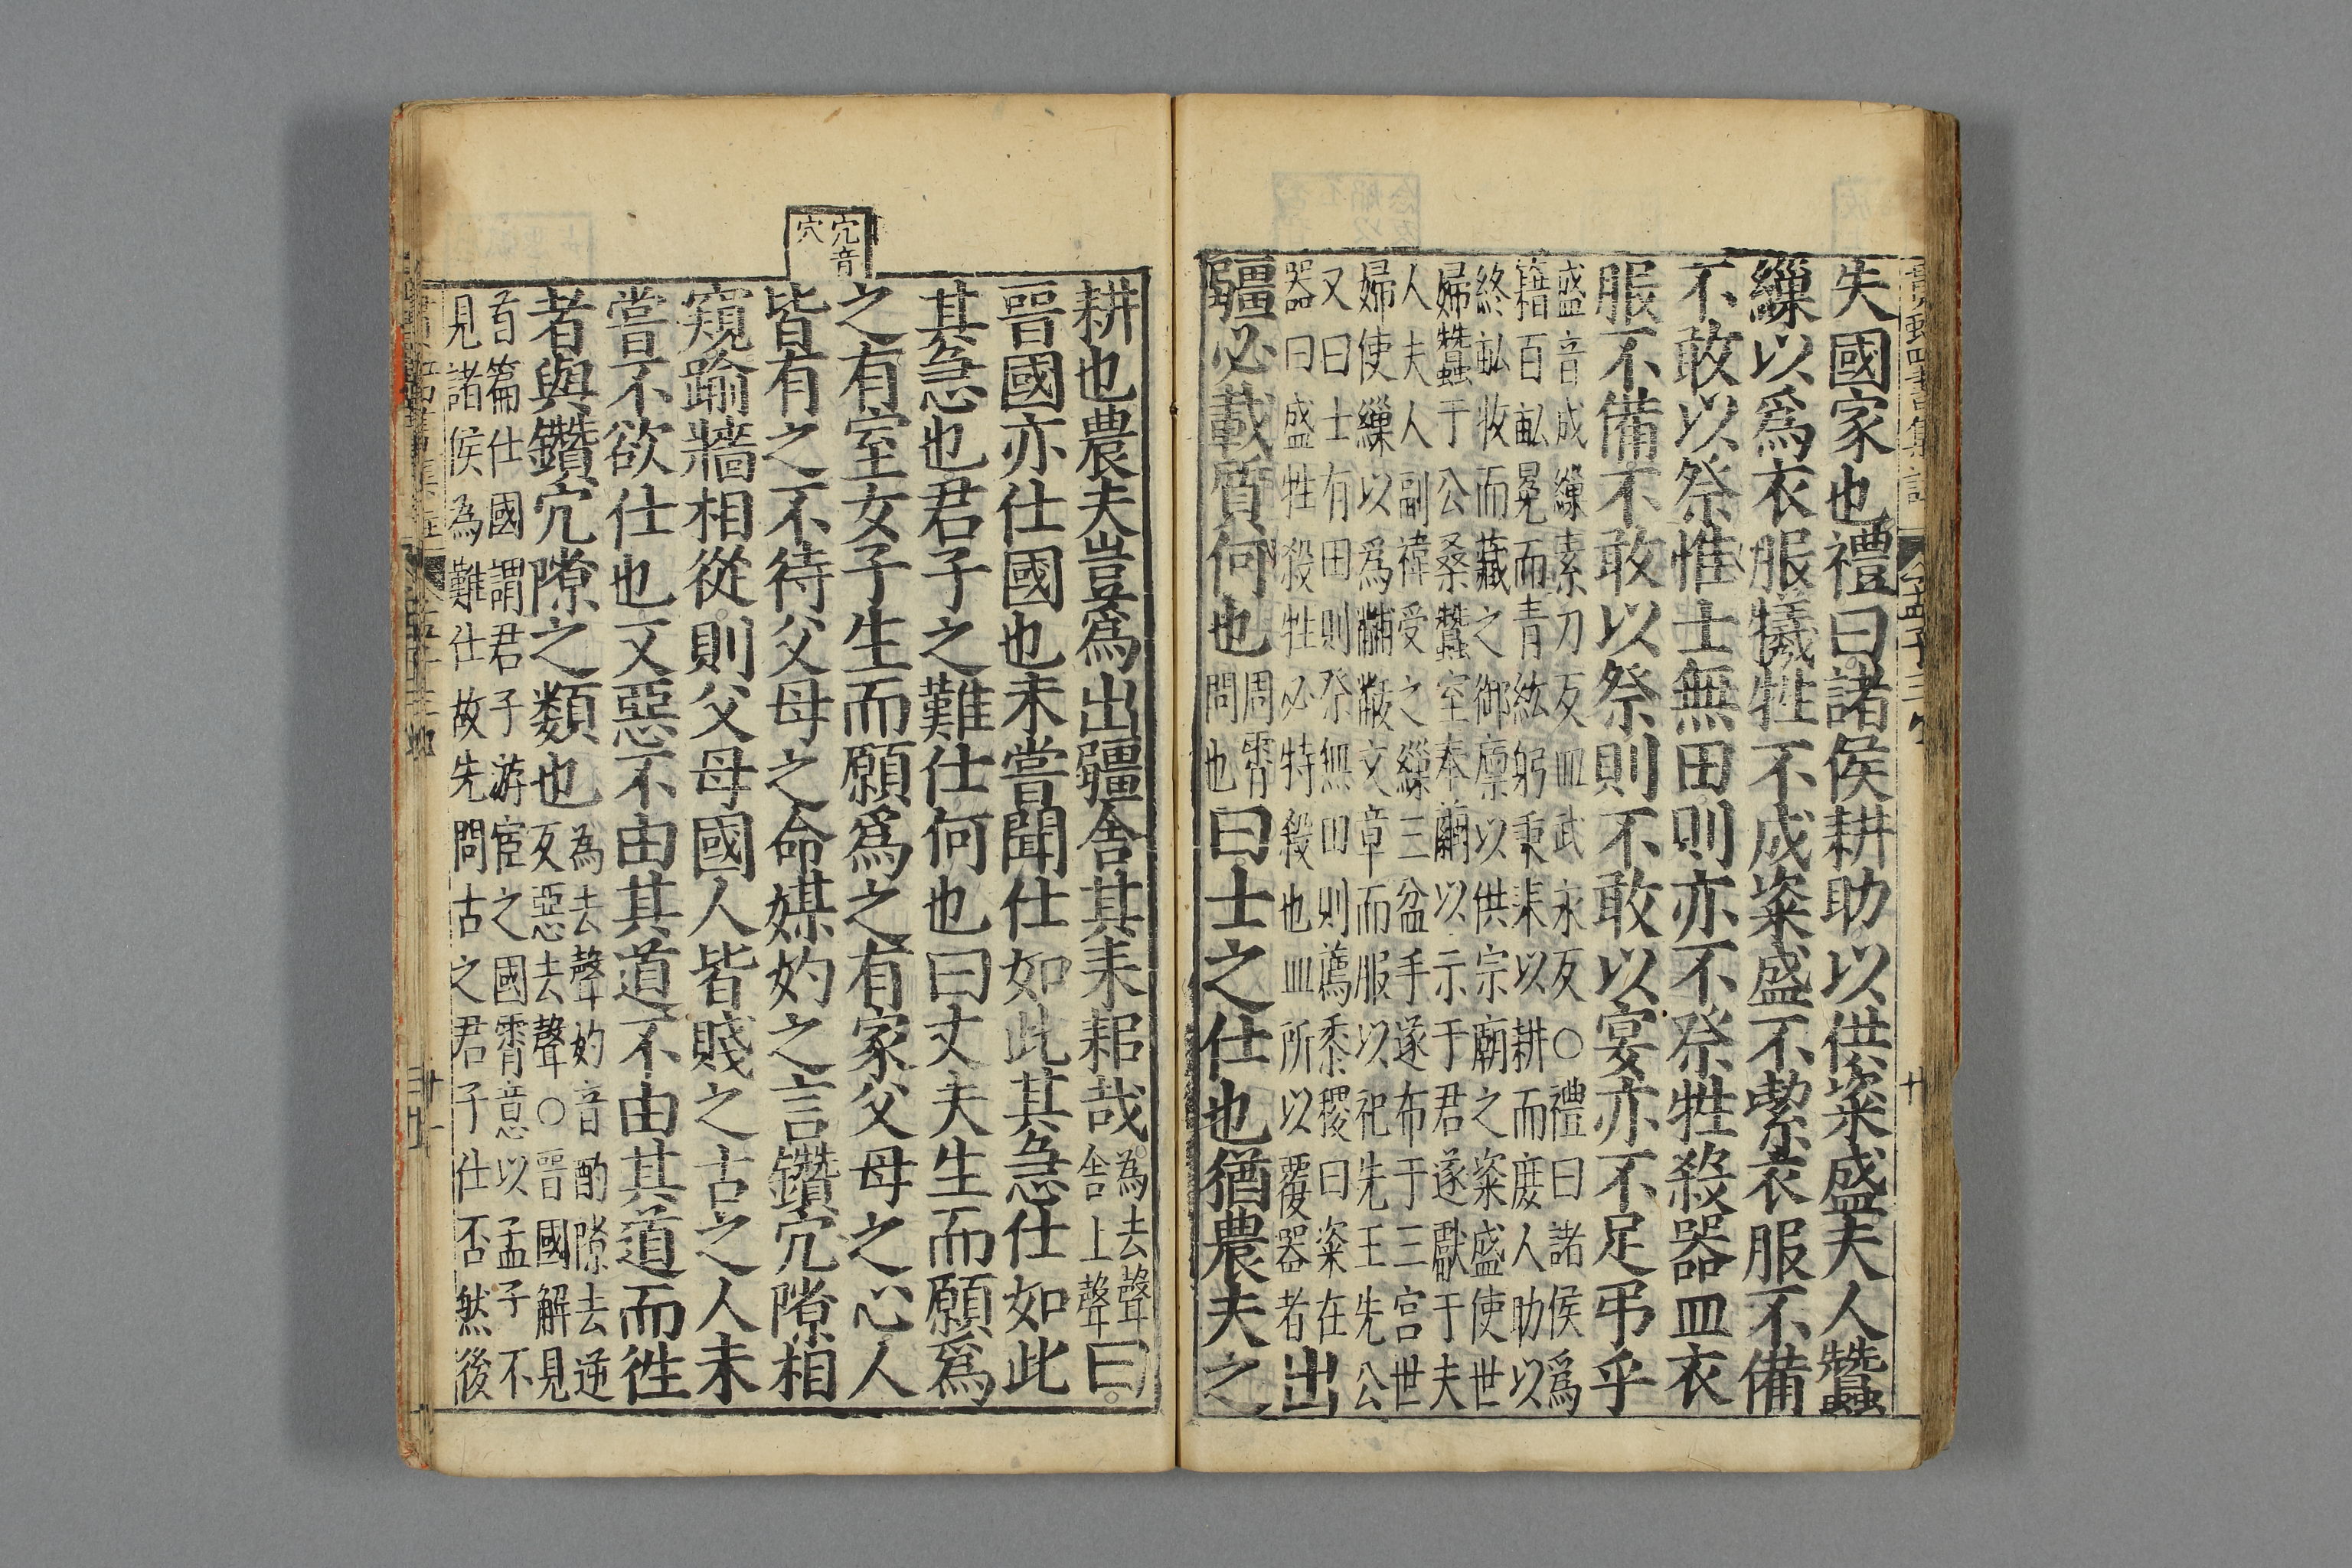 失國家也禮曰諸侯耕助以供粢盛夫人蠶
繅以爲衣服犧牲不成粢盛不潔衣服不備
不敢以祭惟士無田則亦不祭牲殺器皿衣
服不備不敢以祭則不敢以宴亦不足弔乎
盛音成繅素刀反皿武永反○禮曰諸侯爲
籍百畝冕而青紘躬秉耒以耕而庶人助以
終畝收而藏之御廩以供宗廟之粢盛使世
婦蠶于公桑蠶室奉繭以示于君遂獻于夫
人夫人副褘受之繅三盆手遂布于三宮世
婦使繅以爲黼黻文章而服以祀先王先公
又曰士有田則祭無田則薦黍稷曰粢在
器曰盛牲殺牲必特殺也皿所以覆器者出
疆必載質何也
周霄
問也
曰士之仕也猶農夫之
耕也農夫豈爲出疆舍其耒耜哉
為去聲
舍上聲
曰
晉國亦仕國也未嘗聞仕如此其急仕如此
其急也君子之難仕何也曰丈夫生而願爲
之有室女子生而願爲之有家父母之心人
皆有之不待父母之命媒妁之言鑽穴隙相
窺踰牆相從則父母國人皆賤之古之人未
嘗不欲仕也又惡不由其道不由其道而徃
者與鑽穴隙之類也
為去聲妁音酌隙去逆
反惡去聲○晉國解見
首篇仕國謂君子游宦之國霄意以孟子不
見諸侯為難仕故先問古之君子仕否然後
穴音
穴
孟子三
廿